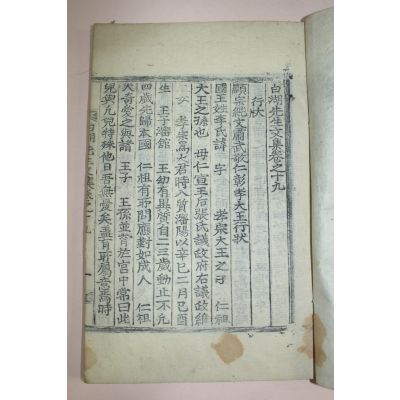 白湖先生文集卷之十九
行狀
顯宗純文肅武敬仁彰孝大王行狀
國王姓李氏諱 字 孝宗大王之子 仁祖
大王之孫也 母仁宣王后張氏議政府右議政維
之女 孝宗爲大君時入質瀋陽以辛巳二月己酉
生 王于瀋館 王幼有異質自二三歲動止不凡
四歲先歸本國 仁祖有所問應對如成人 仁祖
大奇愛之與諸 王子 王孫並育於宮中常曰此
兒與凡兒特殊他日吾無憂矣盖有所屬意焉時
白湖先生文集卷之十九 一